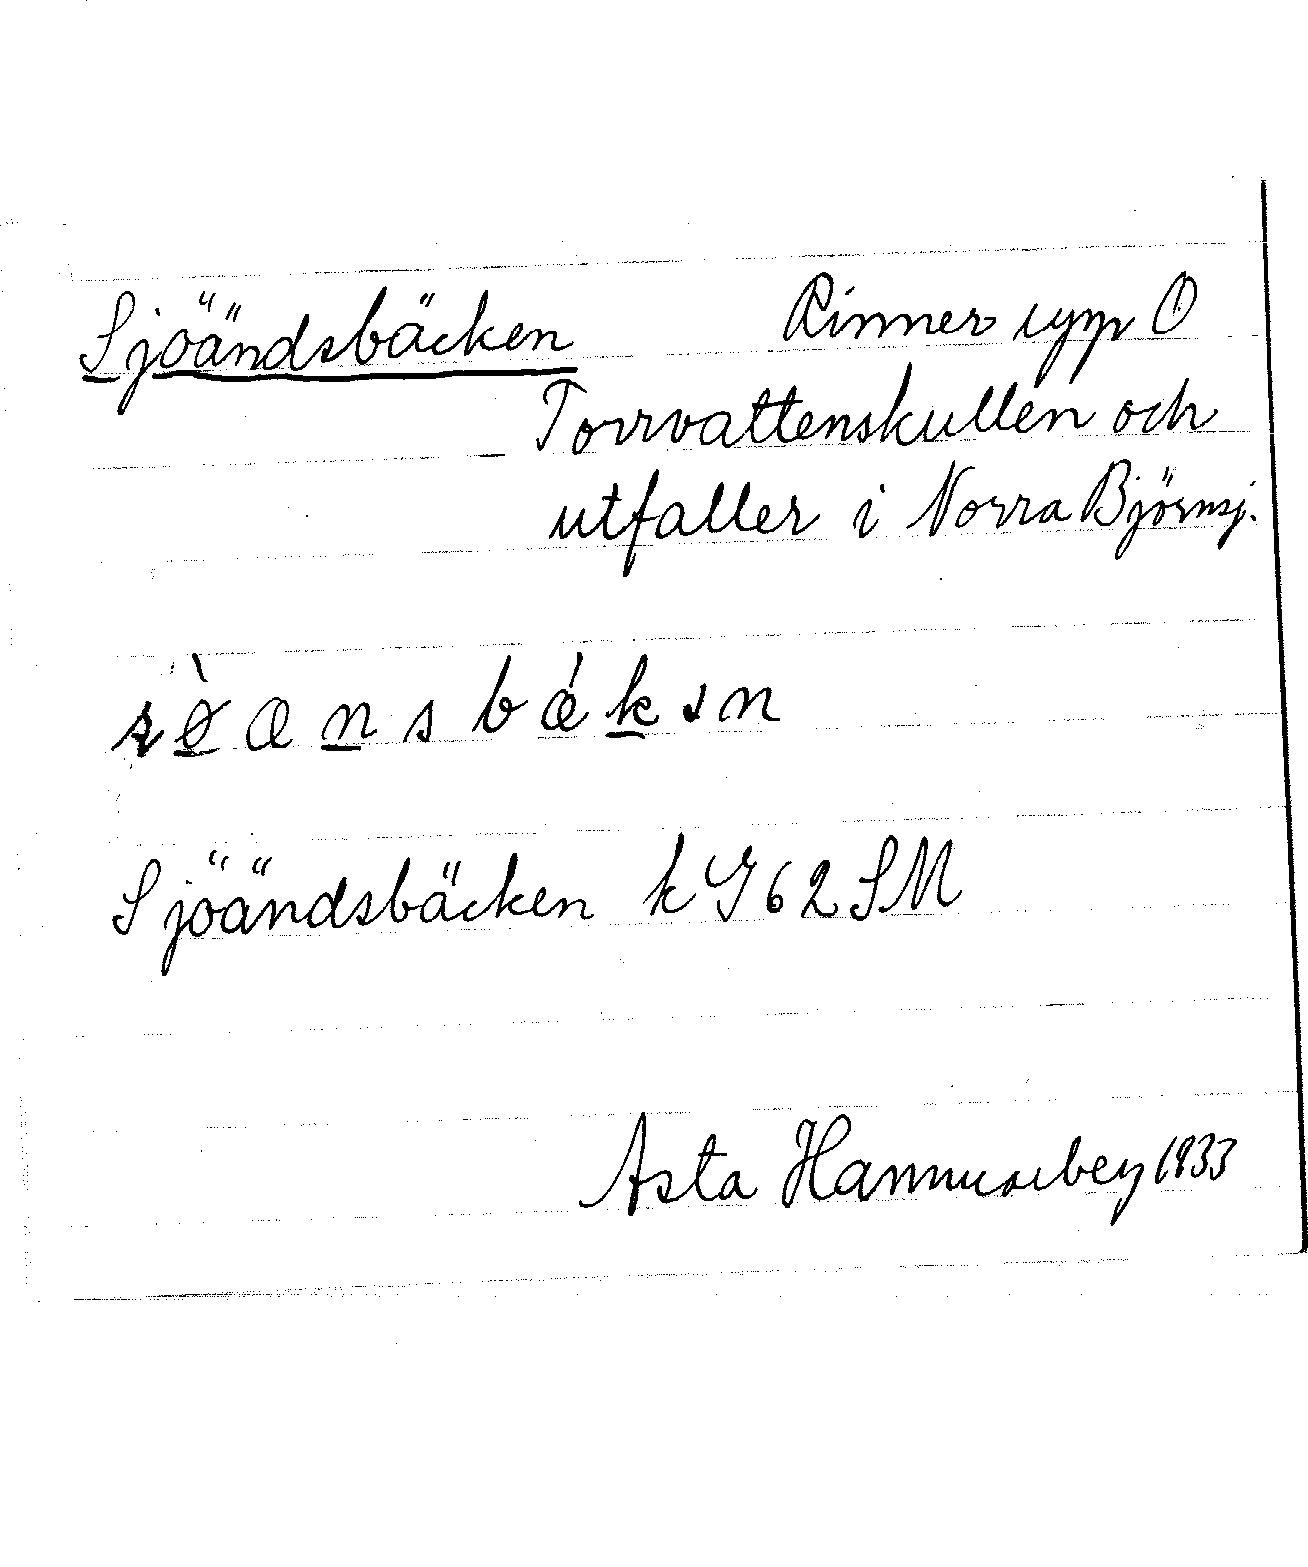 Sjöändsbäcken Rinner upp O
Torrvattenskullen och
utfaller i Norra Björnsj.
Sjöändsbäcken k 62 SM
Asta Hammarbey 1933